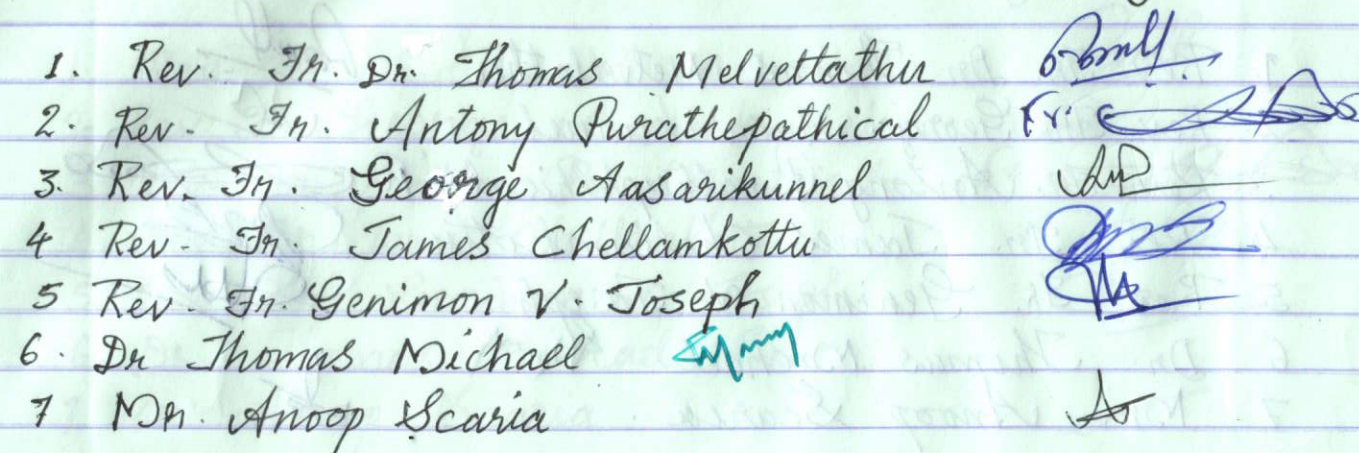 1. Rev. Fr. Dr. Thomas Melvettathu
2. Rev. Fr. Antony Purathepathical Fr.
3. Rev. Fr. George Aasarikunnel
4 Rev. Fr. James Chellamkottu
5 Rev. Fr. Genimon V. Joseph
6. Dr Thomas Michael
7 Mr. Anoop Scaria